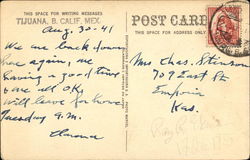 THIS SPACE FOR WRITING MESSAGES
TIJUANA, B. CALIF. MEX.
POST CARD
THIS SPACE FOR ADDRESS ONLY
Aug. 30-41
We are back down
here again, we
having a good time
are all OK.
Will leave for home
Tuesday A.M.
Mrs Chas. Stinson
707 East St
Emporia
Kas.